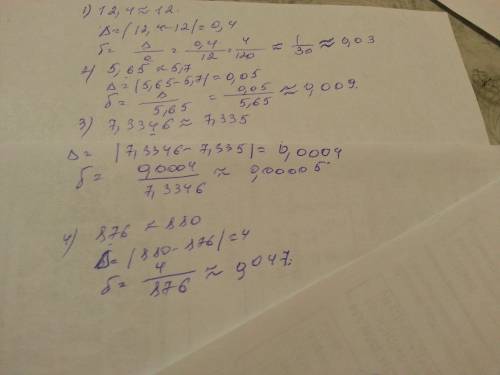 1) 12,4 ≈ 12.
Δ = |12,4 - 12| = 0,4
δ = Δ/a = 0,4/12 = 4/120 ≈ 1/30 ≈ 0,03
2) 5,65 ≈ 5,7
Δ = |5,65 - 5,7| = 0,05
δ = Δ/5,65 = 0,05/5,65 ≈ 0,009.
3) 7,3346 ≈ 7,335
Δ = |7,3346 - 7,335| = 0,0004
δ = 0,0004/7,3346 ≈ 0,00005.
4) 876 ≈ 880
Δ = |880 - 876| = 4
δ = 4/876 ≈ 0,047.